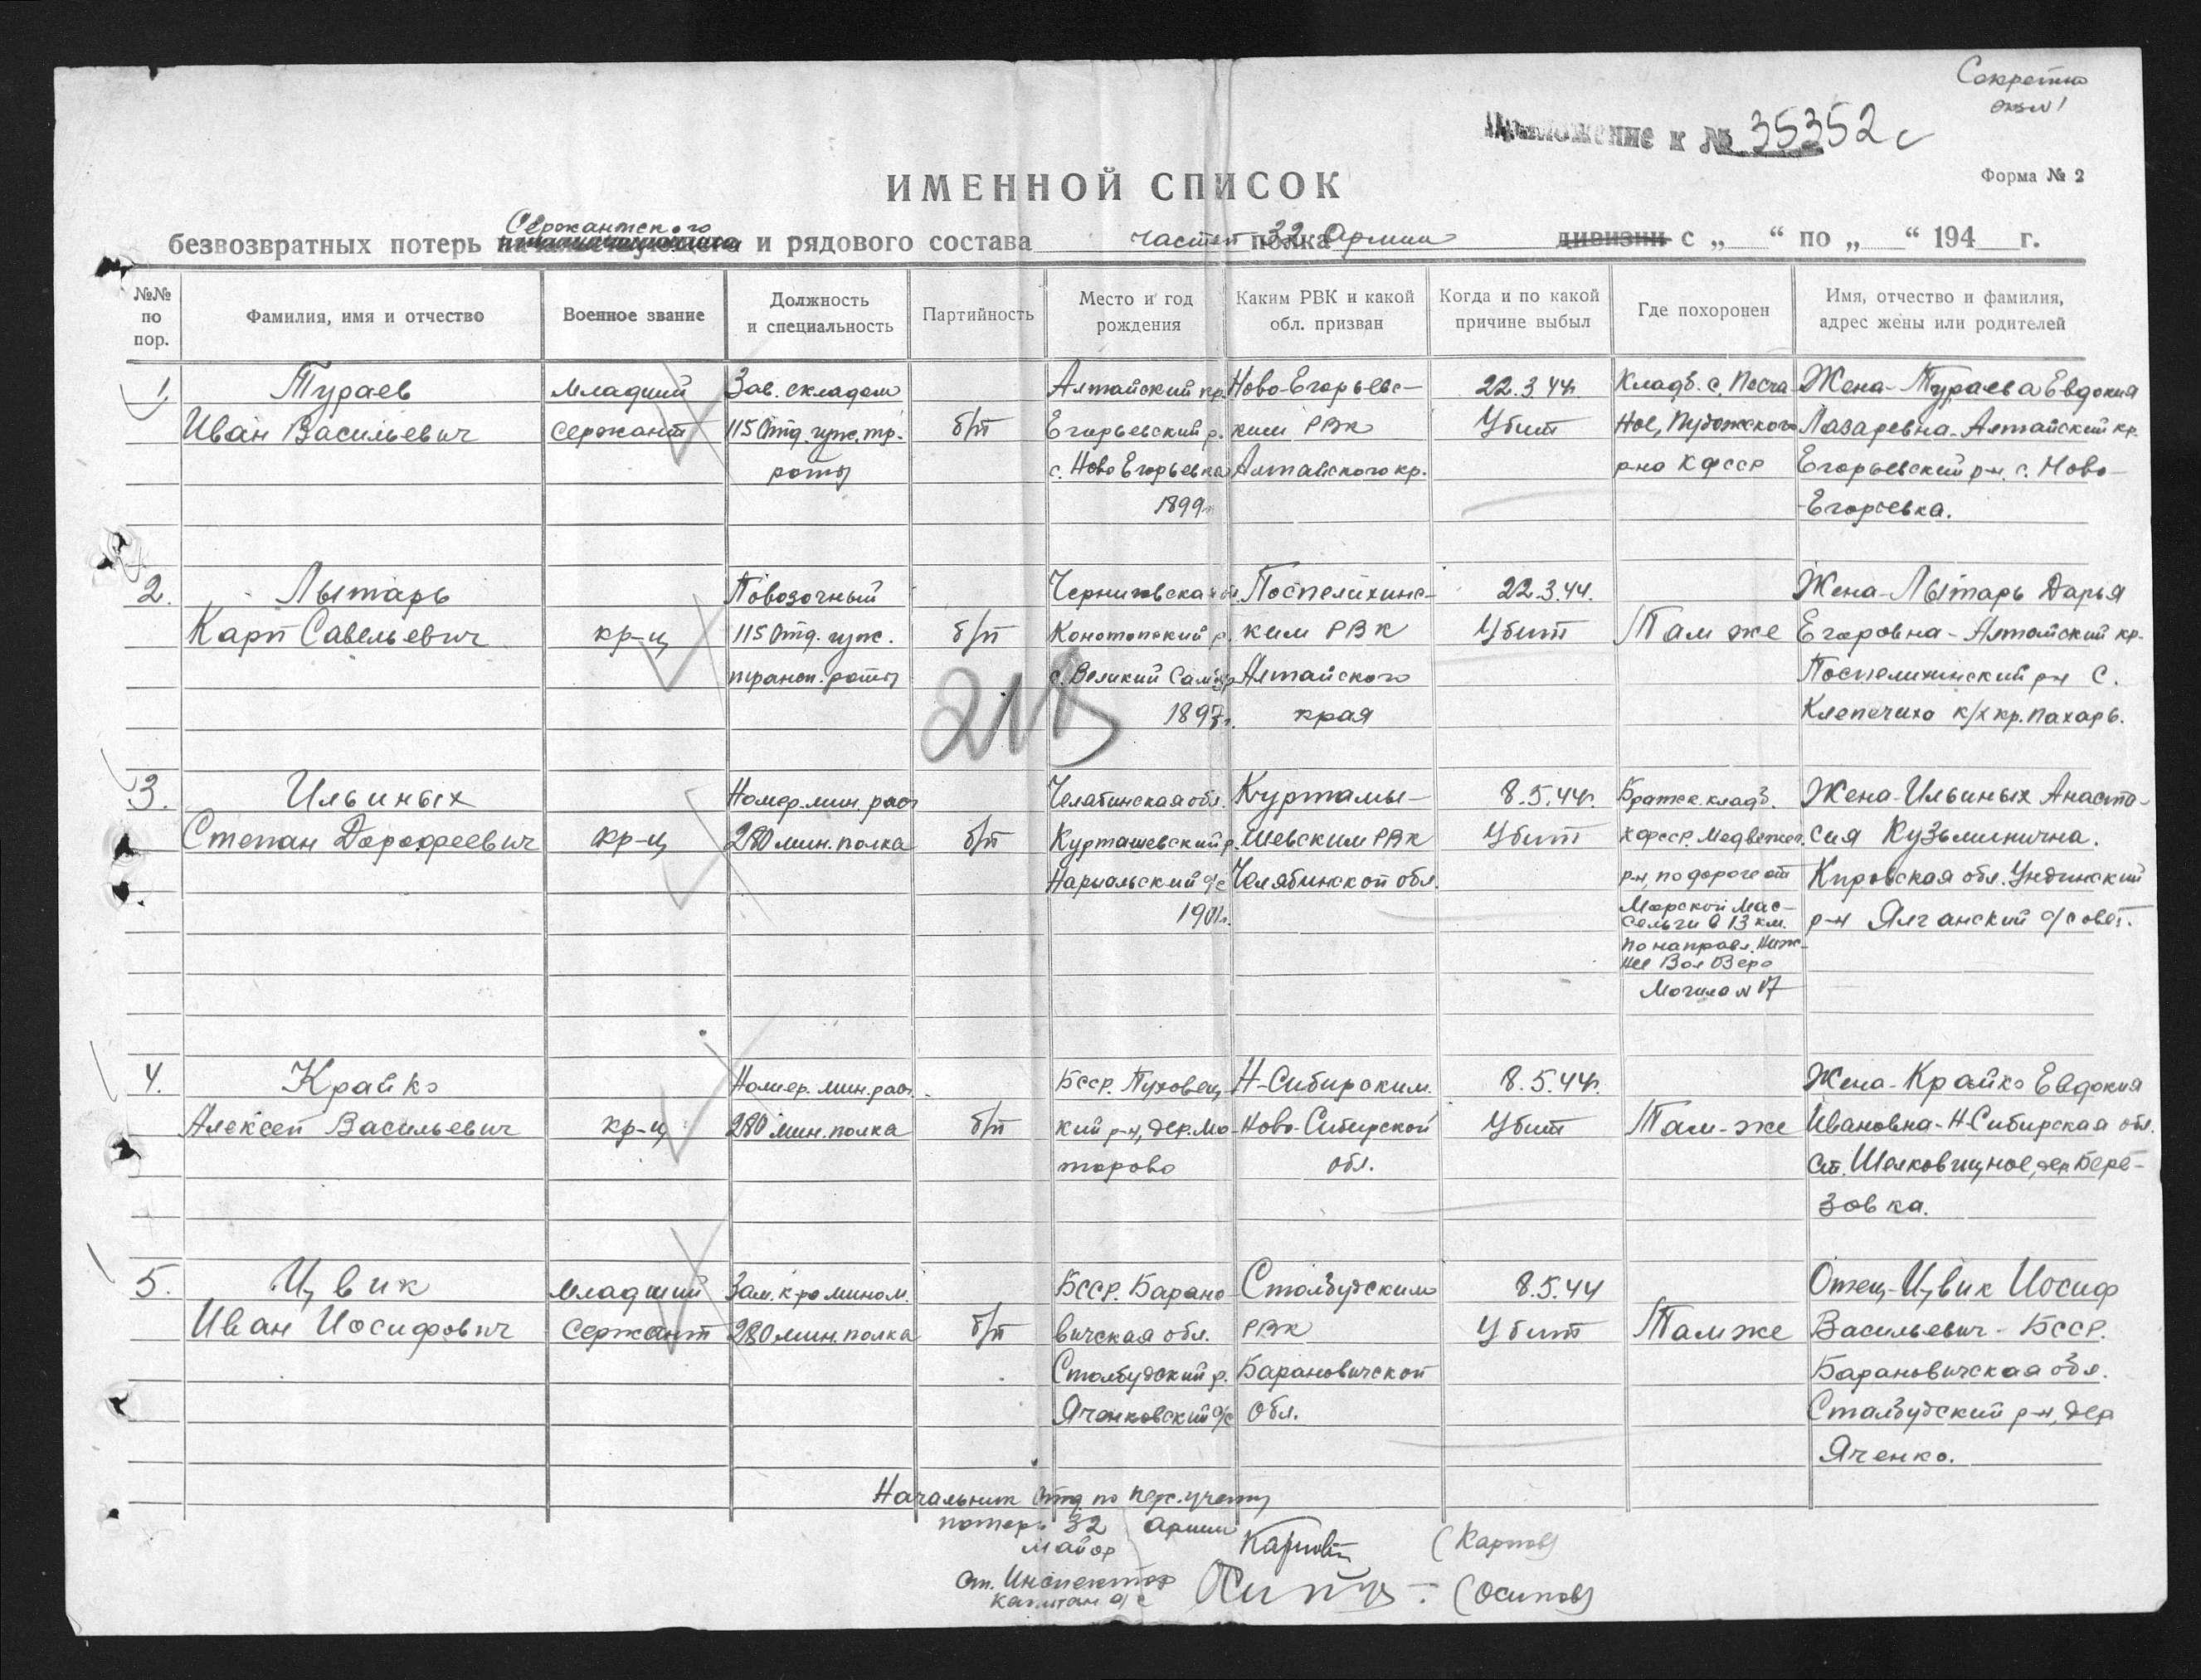 Секретно
экз №1
Приложение к № 35352с
Форма № 2
ИМЕННОЙ СПИСОК
безвозвратных потерь Сержантского и рядового состава частей полка 32 Армии дивизии с „ “ по „ “ 194 г.
№№ по пор.
Фамилия, имя и отчество
Военное звание
Должность и специальность
Партийность
Место и год рождения
Каким РВК и какой обл. призван
Когда и по какой причине выбыл
Где похоронен
Имя, отчество и фамилия, адрес жены или родителей
1. Тураев Младший Зав. складом Алтайский кр. Ново-Егорьевс- 22.3.44г. Кладб. с. Песча- Жена-Тураева Евдокия
Иван Васильевич Сержант 115 Отд. гуж. тр. б/п Егорьевский р. ким РВК Убит ное, Пудожского Лазаревна-Алтайский кр.
роты с. Ново Егорьевка Алтайского кр. р-на КФССР Егорьевский р-н. с. Ново-
1899г. -Егорьевка.
2. Лытарь Повозочный Черниговская об. Поспелихинс- 22.3.44. Жена-Лытарь Дарья
Карп Савельевич кр-ц 115 Отд. гуж. б/п Конотопский р. ким РВК Убит Там же Егоровна-Алтайский кр.
трансп. роты с. Великий Самбур Алтайского Поспелихинский р-н С.
1897г. края Клепечиха к/х кр. пахарь.
3. Ильиных Номер. мин. расч Челябинская обл. Куртамы- 8.5.44г. Братск. кладб. Жена-Ильиных Анаста-
Степан Дорофеевич кр-ц 280 мин. полка б/п Курташевский р. шевским РВК Убит КФССР. Медвежьег. сия Кузьминична.
с/с Челябинской обл. р-н, по дороге от Кировская обл. Унинский
1901г. Морской Мас- р-н Ялганский с/совет.
сельги в 13 км.
по направл. Ниж-
нее Вол Озеро
Могила № 17
4. Крайко Номер. мин. расч. БССР. Пуховец- Н-Сибирским. 8.5.44г. Жена-Крайко Евдокия
Алексей Васильевич кр-ц 280 мин. полка б/п кий р-н, дер. Мо- Ново-Сибирской Убит Там-же Ивановна-Н-Сибирская обл.
торово обл. ст. дер Бере-
зовка.
5. Цвик Младший Зам. к-ра мином. БССР. Барано- Столбудским 8.5.44 Отец-Цвик Иосиф
Иван Иосифович Сержант 280 мин. полка б/п вичская обл. РВК Убит Там же Васильевич-БССР.
Столбудский р. Барановичской Барановичская обл.
Яченковский с/с Обл. Сталбудский р-н, дер
Яченко.
218
Начальник Отд. по перс. учету
потерь 32 Армии
майор Карпов (Карпов)
ст. Инспектор
капитан а/с Осипов (Осипов)